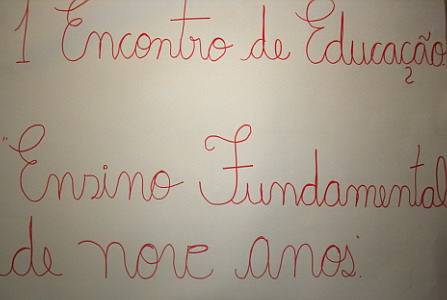 1 Encontro de Educação
"Ensino Fundamental
de nove anos.